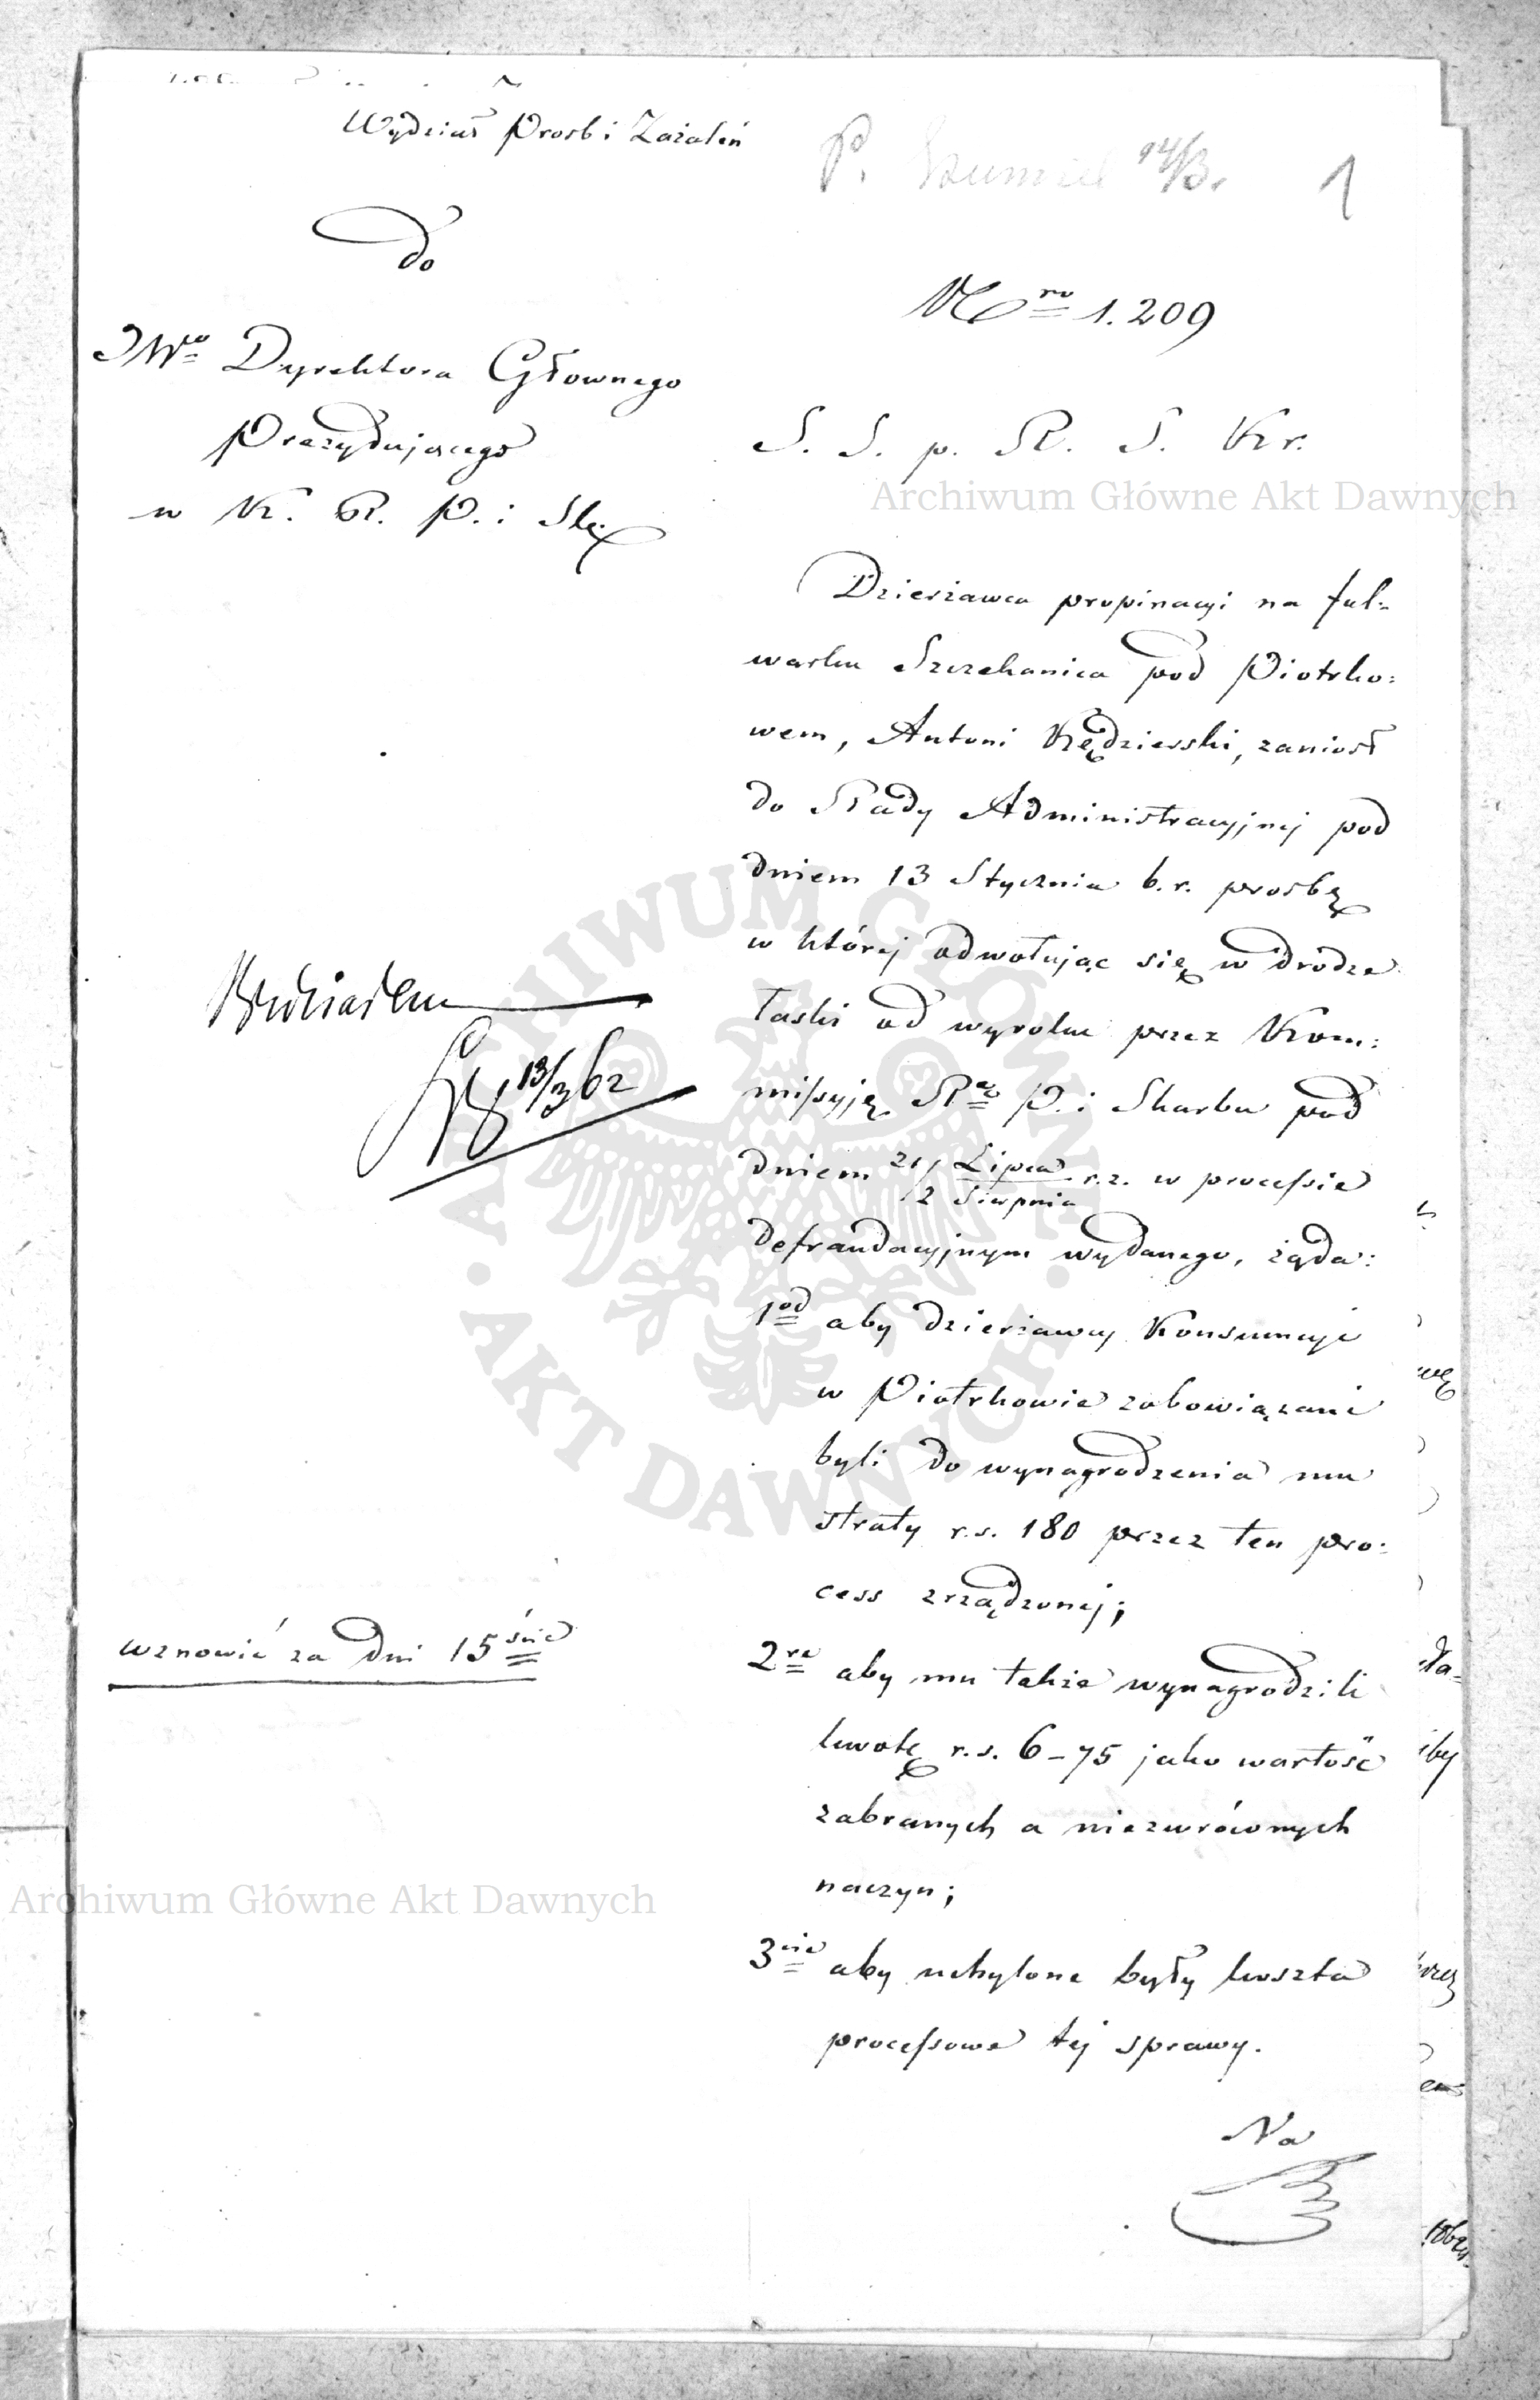 Wydział Prosb i Zażaleń
P. 14/3. 1
do
Nro 1.209
JWo Dyrektora Głownego
Prezydującego
w K. R. P. i Sk.
S. S. p. R. S. Kr.
Archiwum Główne Akt Dawnych
Dzierżawca propinacyi na fol:
warku Szczekanica pod Piotrko:
wem, Antoni Kędzierski, zaniosł
do Rady Administracyjnej pod
dniem 13 Stycznia b.r. prosbę
w której odwołując się w drodze
łaski od wyroku przez Kom:
missyję Rą P. i Skarbu pod
dniem 21/2 Lipca/Sierpnia r.z. w processie
defraudacyjnym wydanego, żąda:
1od aby dzierżawcy Konsumcyi
w Piotrkowie zobowiązani
byli do wynagrodzenia mu
straty r.s. 180 przez ten pro:
cess zrządzonej;
2re aby mu także wynagrodzili
kwotę r.s. 6-75 jako wartość
zabranych a niezwróconych
naczyn;
3cie aby uchylone były koszta
processowe tej sprawy.
Na
13/3 62
wznowić za dni 15ście
Archiwum Główne Akt Dawnych
ARCHIWUM GŁÓWNE · AKT DAWNYCH ·